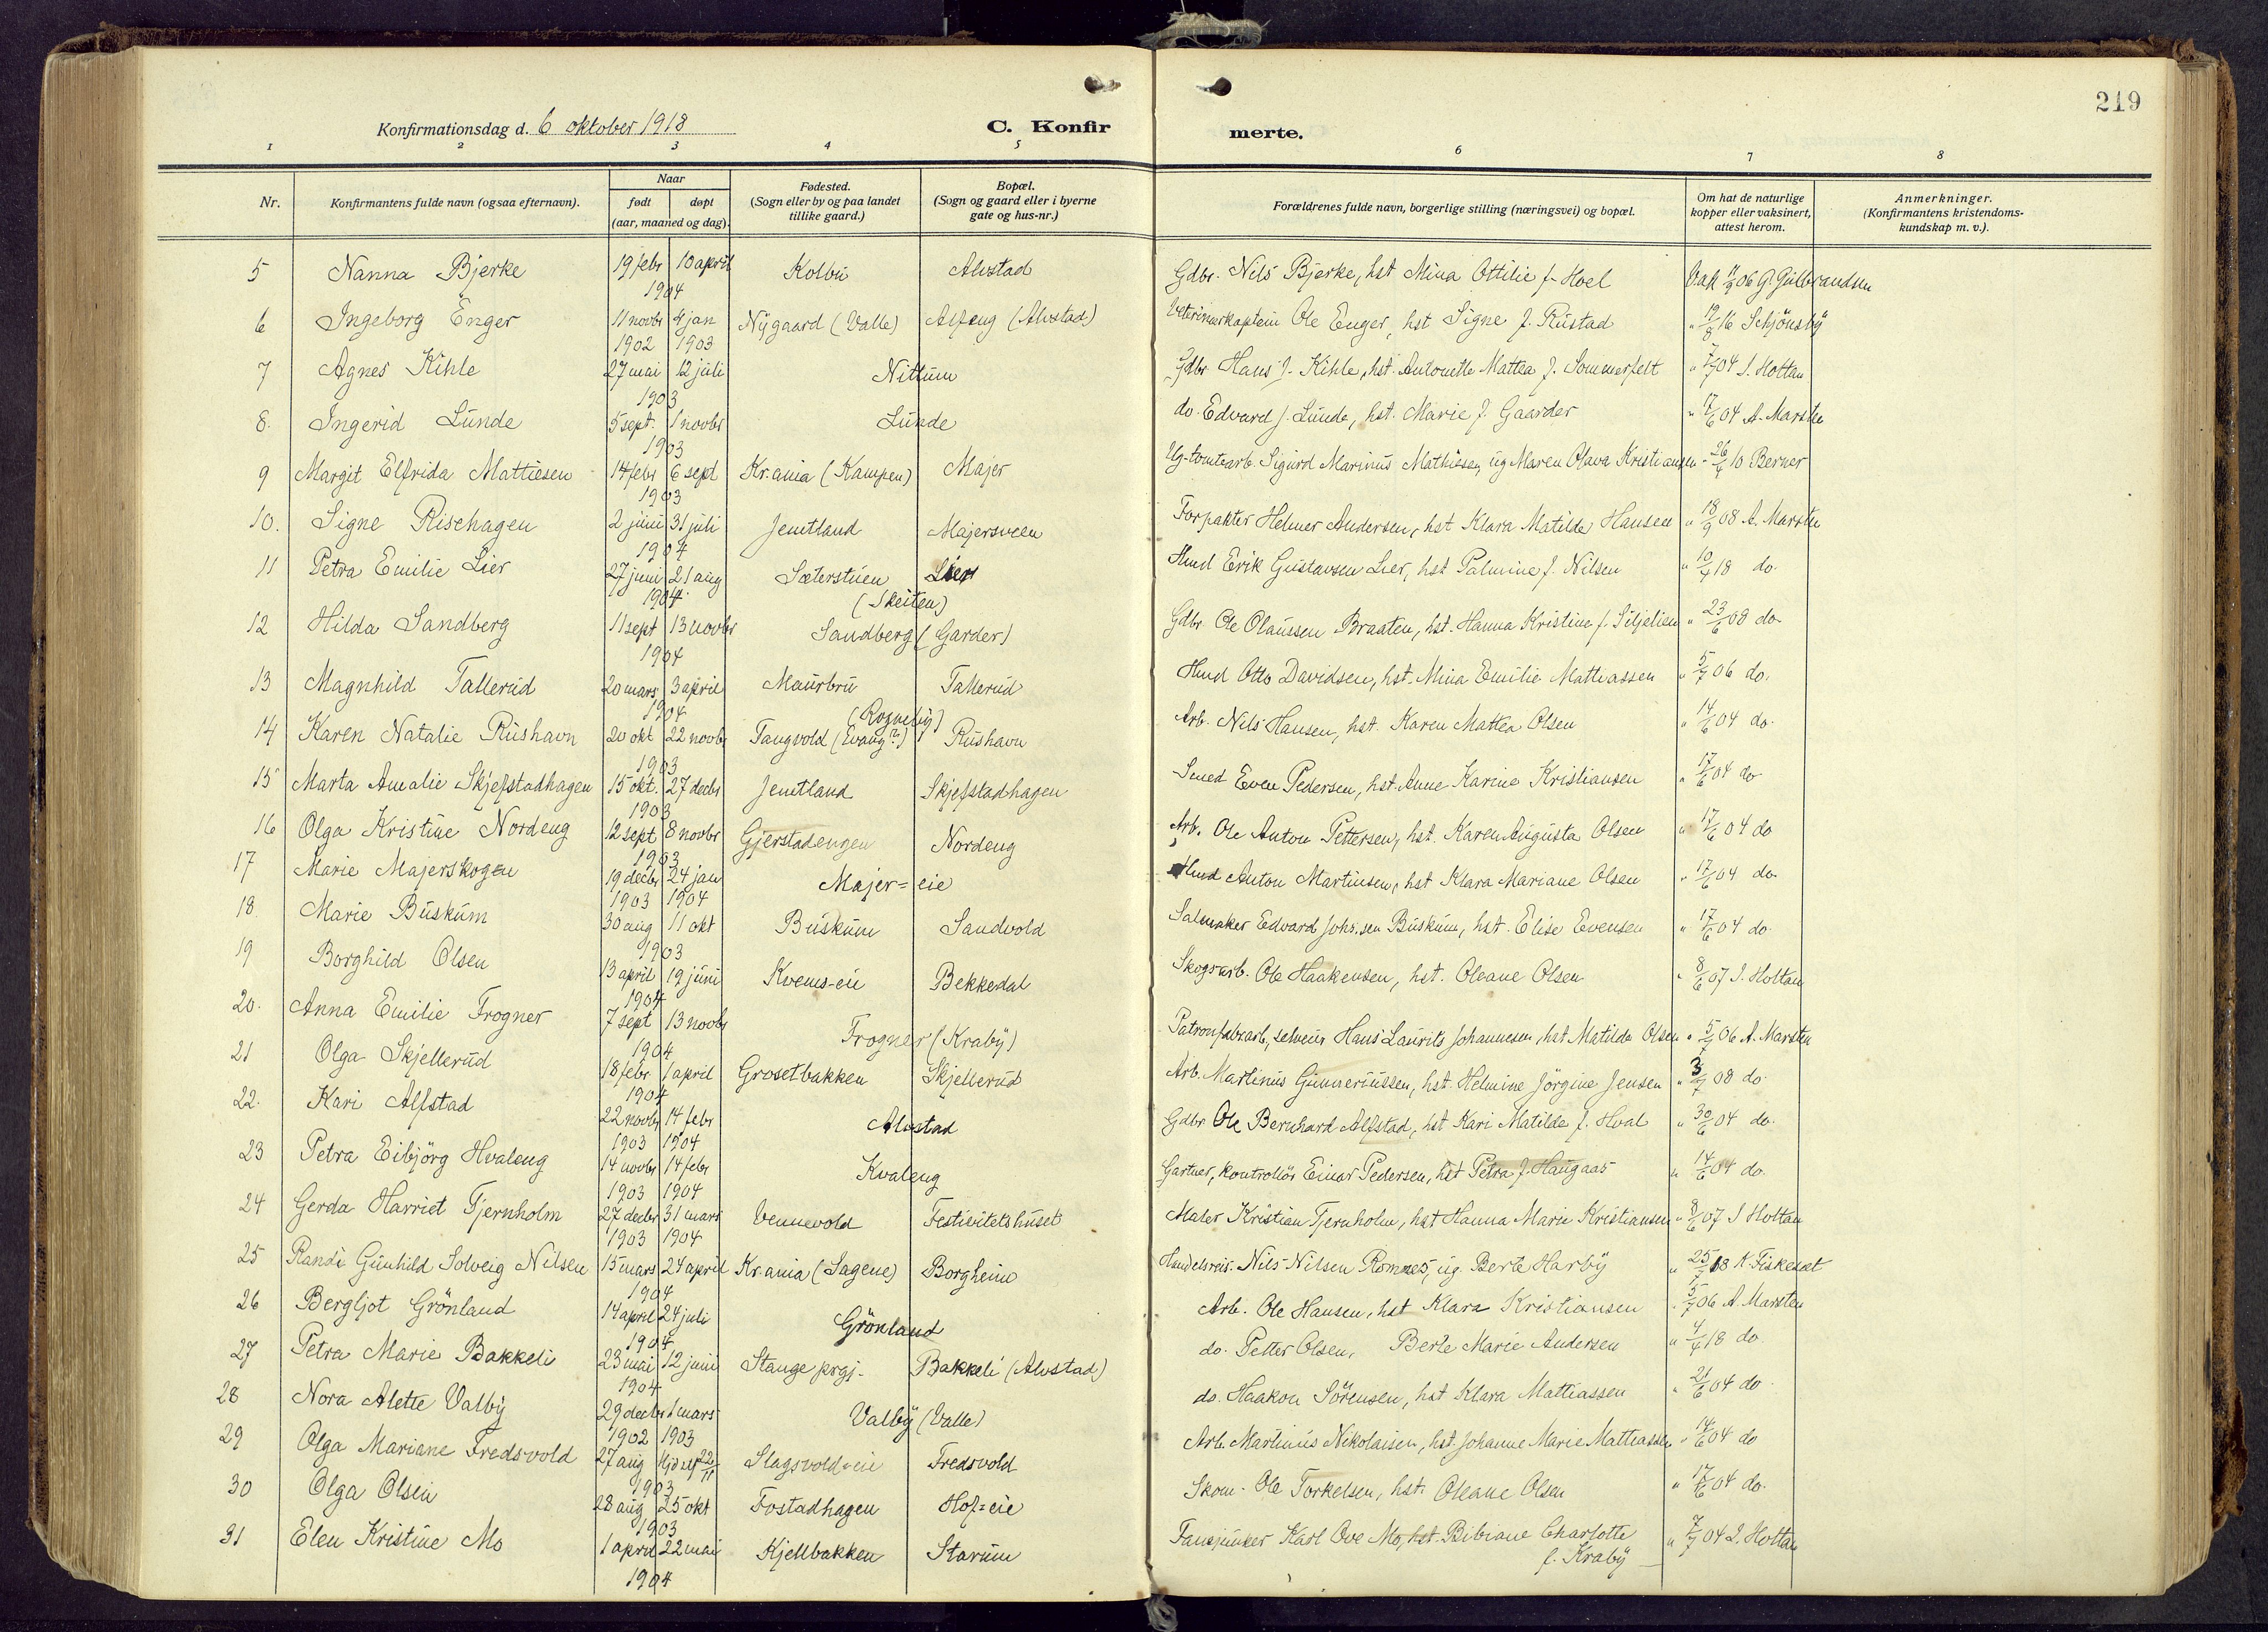 219
Konfirmationsdag d. 6 oktober 1918 C. Konfir merte.
1 2 3 4 5 6 7 8
Nr. Konfirmantens fulde navn (ogsaa efternavn). Naar født døpt (aar, maaned og dag). Fødested. (Sogn eller by og paa landet tillike gaard.) Bopæl. (Sogn og gaard eller i byerne gate og hus-nr.) Forældrenes fulde navn, borgerlige stilling (næringsvei) og bopæl. Om hat de naturlige kopper eller vaksinert, attest herom. Anmerkninger. (Konfirmantens kristendomskundskap m. v.).
5 Nanna Bjerke 19 febr 10 april 1904 Kolbu Alvstad Gdbr. Nils Bjerke, hst Mina Ottilie f. Hoel Vak 06 G. Gulbrandsen
6 Ingeborg Enger 11 novbr 4 jan 1902 1903 Nygaard (Valle) Alfeng (Alvstad) Veterinærkaptein Ole Enger, hst Signe f. Rustad " 19/8 16 Schjønsby
7 Agnes Kihle 27 mai 12 juli 1903 Nittum Gdbr Hans J. Kihle, hst. Antonette Mattea f. Sommerfelt " 7/7 04 S. Holtan
8. Ingerid Lunde 5 sept. 1 novbr 1903 Lunde do. Edvard J. Lunde, hst. Marie f. Gaarder " 17/6 04 A. Marsten
9 Margit Elfrida Mattiesen 14 febr 6 sept 1903 Kr.ania (Kampen) Majer Ug. tomtearb. Sigurd Marinus Mathiesen, ug Maren Olava Kristiansen " 26/4 10 Berner
10. Signe Rischagen 2 juni 31 juli 1904 Jemtland Majersveen Forpakter Helmer Andersen, hst Klara Matilde Hansen " 18/9 08 A. Marsten
11 Petra Emilie Lier 27 juni 21 aug 1904. Sæterstuen Lier (Skeiten) Hmd Erik Gustavsen Lier, hst Palmine f. Nilsen " 10/4 18 do.
12 Hilda Sandberg 11 sept 13 novbr 1904 Sandberg (Garder) Gdbr. Ole Olaussen Braaten, hst. Hanna Kristine f. Siljelien " 23/6 08 do.
13 Magnhild Tallerud 20 mars 3 april 1904 Maurbru Tallerud Hmd Otto Davidsen, hst. Mina Emilie Mathiassen " 5/7 06 do.
14 Karen Natalie Rushavn 20 okt 22 novbr 1903 Tangvold (Evang?) (Rogneby) Rushavn Arb. Nils Hansen, hst. Karen Mattea Olsen " 14/6 04 do.
15 Marta Amalie Skjefstadhagen 15 okt. 27 decbr 1903 Jemtland Skjefstadhagen Smed Even Pedersen, hst. Anne Karine Kristiansen " 17/6 04 do
16 Olga Kristine Nordeng 12 sept 8 novbr 1903 Gjerstadengen Nordeng Arb. Ole Anton Pettersen, hst. Karen Augusta Olsen " 17/6 04 do
17 Marie Majerskogen 19 decbr 24 jan 1903 1904 Majer=eie Hmd Anton Martinsen, hst Klara Mariane Olsen " 17/6 04 do
18. Marie Buskum 30 aug 11 okt 1903 Buskum Sandvold Salmaker Edvard Johs.sen Buskum, hst. Elise Evensen " 17/6 04 do
19 Borghild Olsen 13 april 19 juni 1904 Kvems-eie Bekkedal Skogsarb. Ole Haakensen, hst. Oleane Olsen " 8/6 07 S. Holtan
20. Anna Emilie Frogner 7 sept 13 novbr 1904 Frogner (Kraby) Patronfabr.arb., selveier Hans Laurits Johannesen, hst Matilde Olsen " 5/7 06 A. Marsten
21 Olga Skjellerud 18 febr 1 april 1904 Grosetbakken Skjellerud Arb. Martinus Gunneriussen, hst. Helmine Jörgine Jensen " 3/7 08 do
22. Kari Alfstad 22 novbr 14 febr 1903 1904 Alvstad Gdbr Ole Bernhard Alfstad, hst Kari Matilde f. Hval " 30/6 04 do.
23 Petra Eibjörg Hvaleng 14 novbr 14 febr 1903 1904 Kvaleng Gartner, kontrollör Einar Pedersen, hst Petra f. Haugaas " 14/6 04 do.
24 Gerda Harriet Tjernholm 27 decbr 31 mars 1903 1904 Vennevold Festivitetshuset Maler Kristian Tjernholm, hst Hanna Marie Kristiansen " 8/6 07 S Holtan
25 Randi Gunhild Solveig Nilsen 15 mars 24 april 1904 Kr.ania (Sagene) Borgheim Handelsreis. Nils Nilsen Romnes, ug. Berte Harby " 25/7 18 K. Fiskeset
26 Bergljot Grönland 14 april 24 juli 1904 Grönland Arb. Ole Hansen, hst Klara Kristiansen " 5/7 06 A. Marsten
27 Petra Marie Bakkeli 23 mai 12 juni 1904 Stange prgj. Bakkeli (Alvstad) do. Petter Olsen, Berte Marie Andersen " 4/4 18 do.
28 Nora Alette Valby 29 decbr 1 mars 1902 1903 Valby (Valle) do. Haakon Sörensen, hst Klara Mattiassen " 21/6 04 do
29 Olga Mariane Fredsvold 27 aug Hjd slf 22/11 1903 Slagsvold-eie Fredsvold Arb. Martinus Nikolaisen, hst. Johanne Marie Mattiassen " 14/6 04 do
30 Olga Olsen 28 aug 25 okt 1903 Fostadhagen Hof=eie Skom. Ole Torkelsen, hst. Oleane Olsen " 17/6 04 do.
31 Elen Kristine Mo 1 april 22 mai 1904 Kjellbakken Starum Fanejunker Karl Ove Mo, hst. Bibiane Charlotte f. Kraby " 7/7 04 S. Holtan